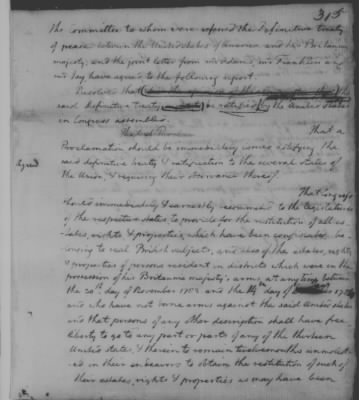 315
The committee to whom were referred the Definitive treaty
of peace between the United states of America and his Britannic
majesty, and the joint letter from mr Adams, mr Franklin & mr
Jay have agreed to the following report.
Resolved that the
said definitive treaty be ratified by the United States
in Congress assembled.
That a
Proclamation should be immediately issued notifying the
said definitive treaty & ratification to the several states of
Agreed
the Union, & requiring their observance thereof.
That congress
should immediately & earnestly recommend to the legislatures
of the respective states to provide for the restitution of all es-
tates, rights & properties, which have been confiscated, be-
longing to real British subjects, and also of the estates, rights
& properties of persons resident in districts which were in the
possession of his Britannic majesty's arms, at any time between
the 30th day of November 1782 and the 14th day of
and who have not borne arms against the said United states
and that persons of any other description shall have free
liberty to go to any part or parts of any of the thirteen
United states, & therein to remain twelve months unmolest-
ed in their endeavors to obtain the restitution of such of
their estates, rights & properties as may have been